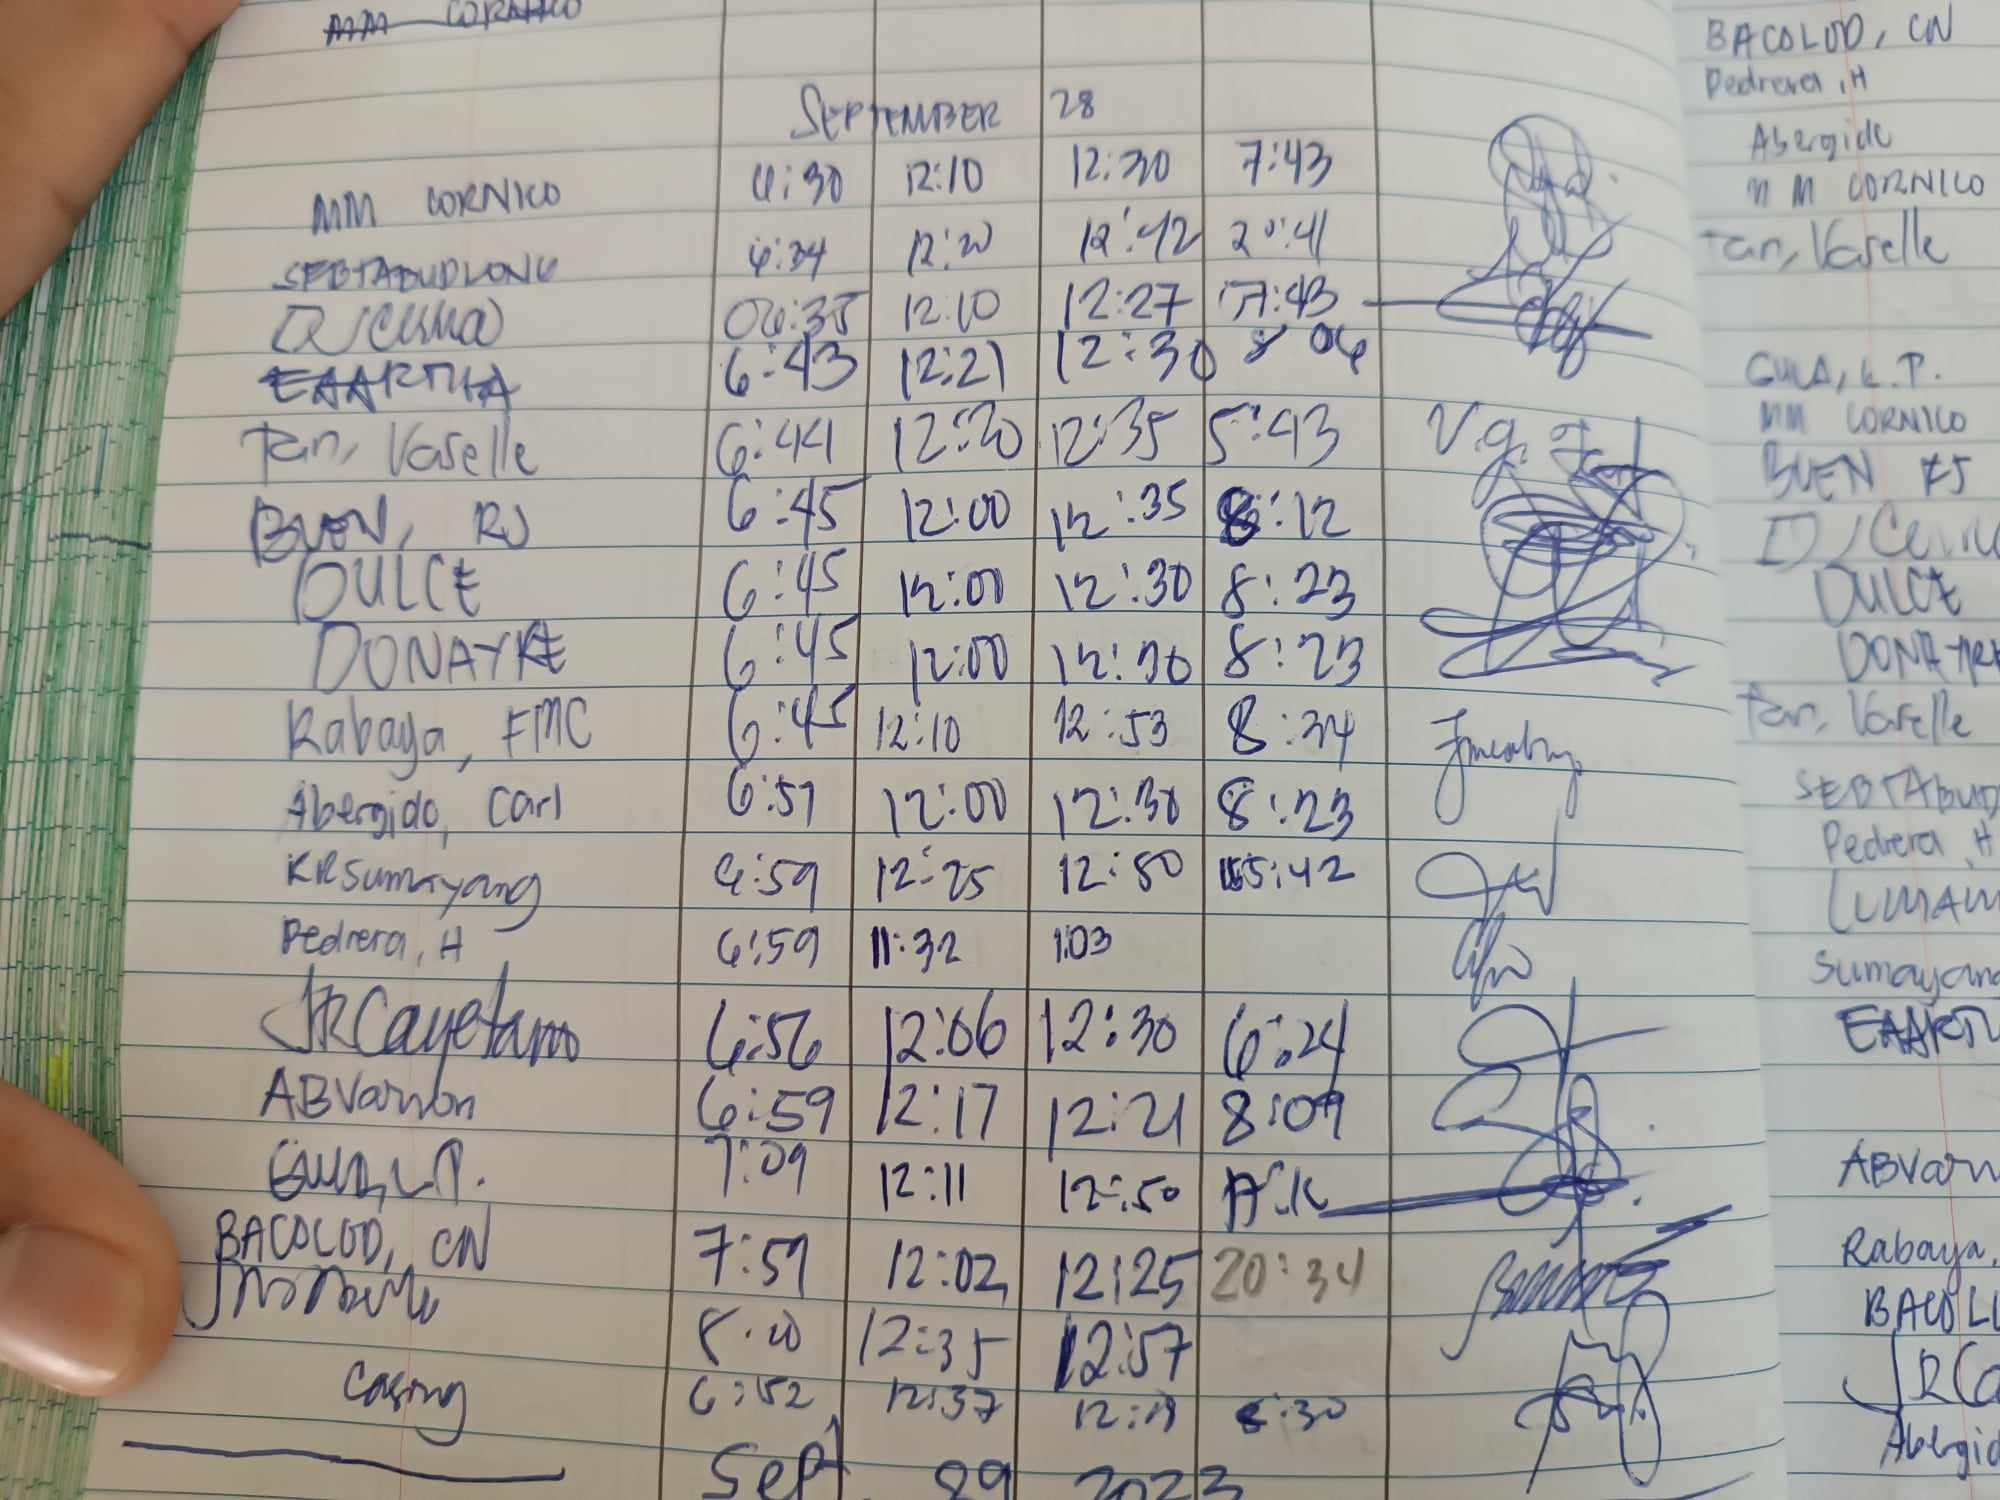 MM CORNICO
SEPTEMBER 28
MM CORNICO 6:30 12:10 12:30 7:43
SEBTABUDLONG 6:34 12:20 12:42 20:41
06:35 12:10 12:27 7:43
EAARTHA 6:43 12:21 12:30 8 06
Tan, Vaselle 6:44 12:20 12:35 5:43
BUEN, RJ 6:45 12:00 12:35 8:12
DULCE 6:45 12:00 12:30 8:23
DONAYRE 6:45 12:00 12:30 8:23
Rabaya, FMC 6:45 12:10 12:53 8:34
Abergido, Carl 6:57 12:00 12:30 8:23
KRSumayang 6:59 12:25 12:50 5:42
Pedrera, H 6:59 11:32 1:03
JRCayetano 6:56 12:06 12:30 6:24
ABVarron 6:59 12:17 12:21 8:09
GULA, L.P. 7:09 12:11 12:50
BACOLOD, CN 7:59 12:02 12:25 20:34
8:20 12:35 12:57
Casing 6:52 12:37 12:19 8:30
Sept 29 2023
BACOLOD, CN
Pedrera, H
Abergido
MM CORNICO
Tan, Vaselle
GULA, L.P.
MM CORNICO
BUEN RJ
DULCE
DONAYRE
Tan, Vaselle
SEBTABUD
Pedrera, H
Sumayang
EAART
ABVarr
Rabaya,
BACOL
JRCa
Abergid